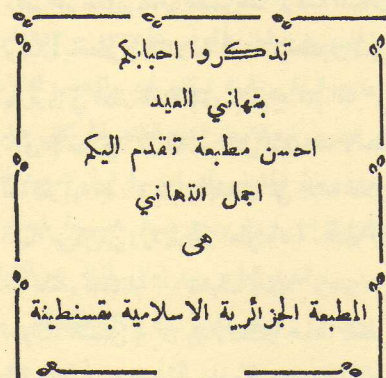 تذكروا احبابكم
بتهاني العيد
احسن مطبعة تقدم اليكم
اجمل التهاني
هى
المطبعة الجزائرية الاسلامية بقسنطينة